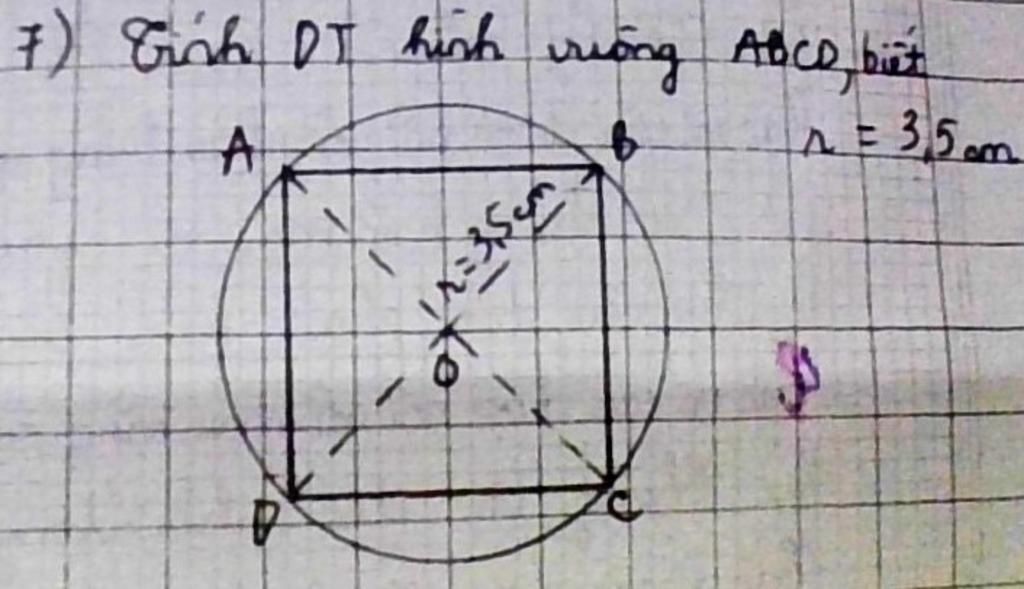 7) Tính DT hình vuông ABCD, biết
r = 3,5 cm
A
B
r=3,5
O
D
C